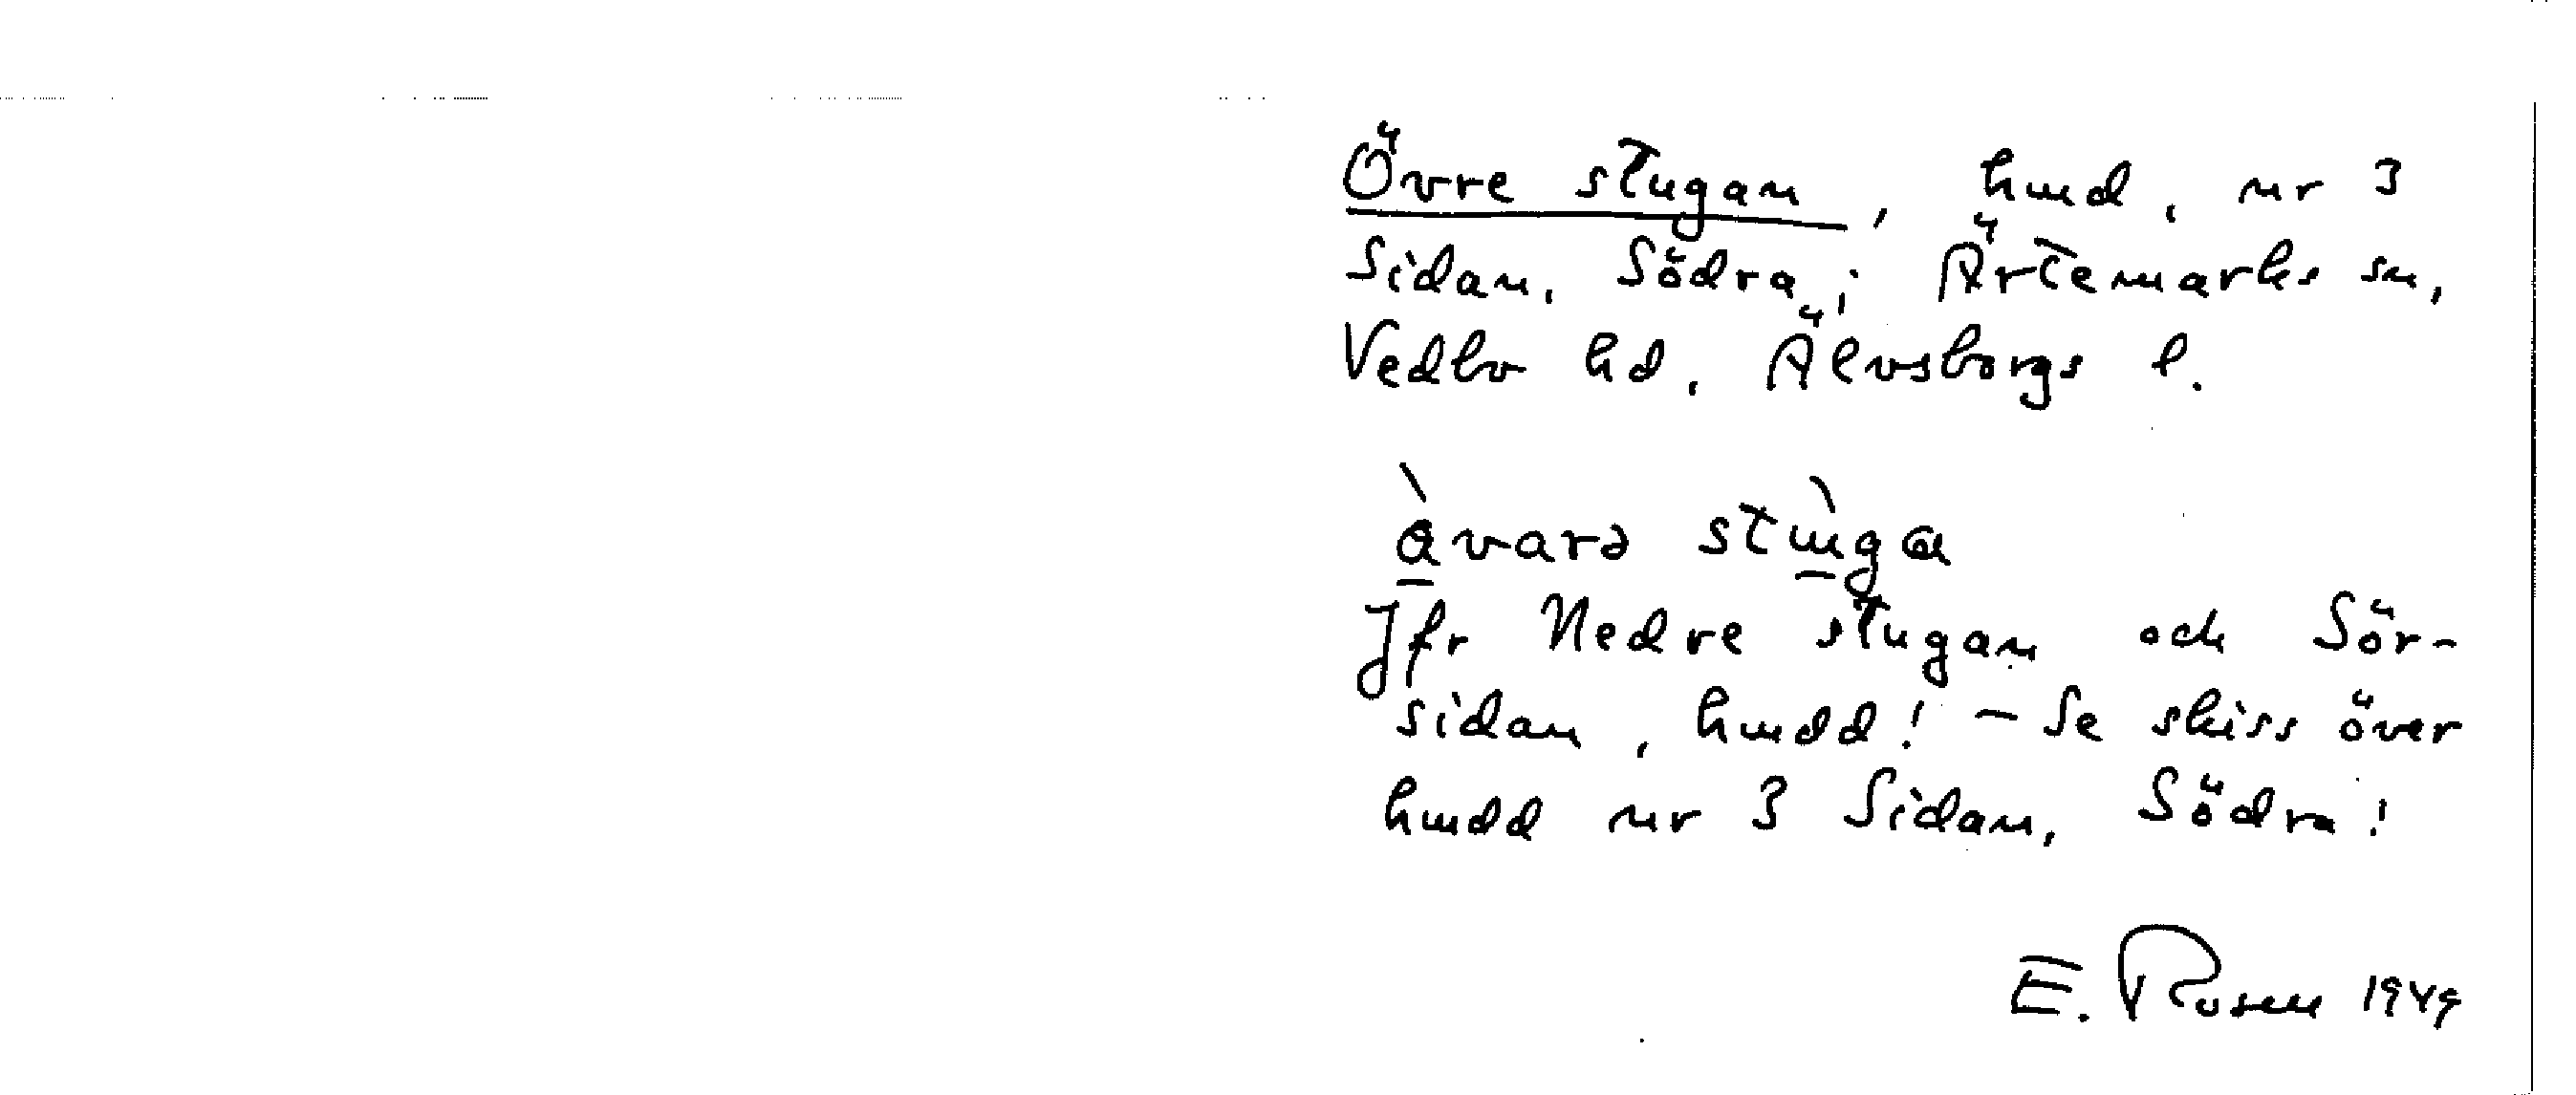 Övre stugan, hmd, nr 3
Sidan, Södra; Ärtemarks sn,
Vedbo hd, Älvsborgs l.
àvarə stùga
Jfr Nedre stugan och Sör-
sidan, hmdd! – Se skiss över
hmdd nr 3 Sidan, Södra!
E. Rosen 1949